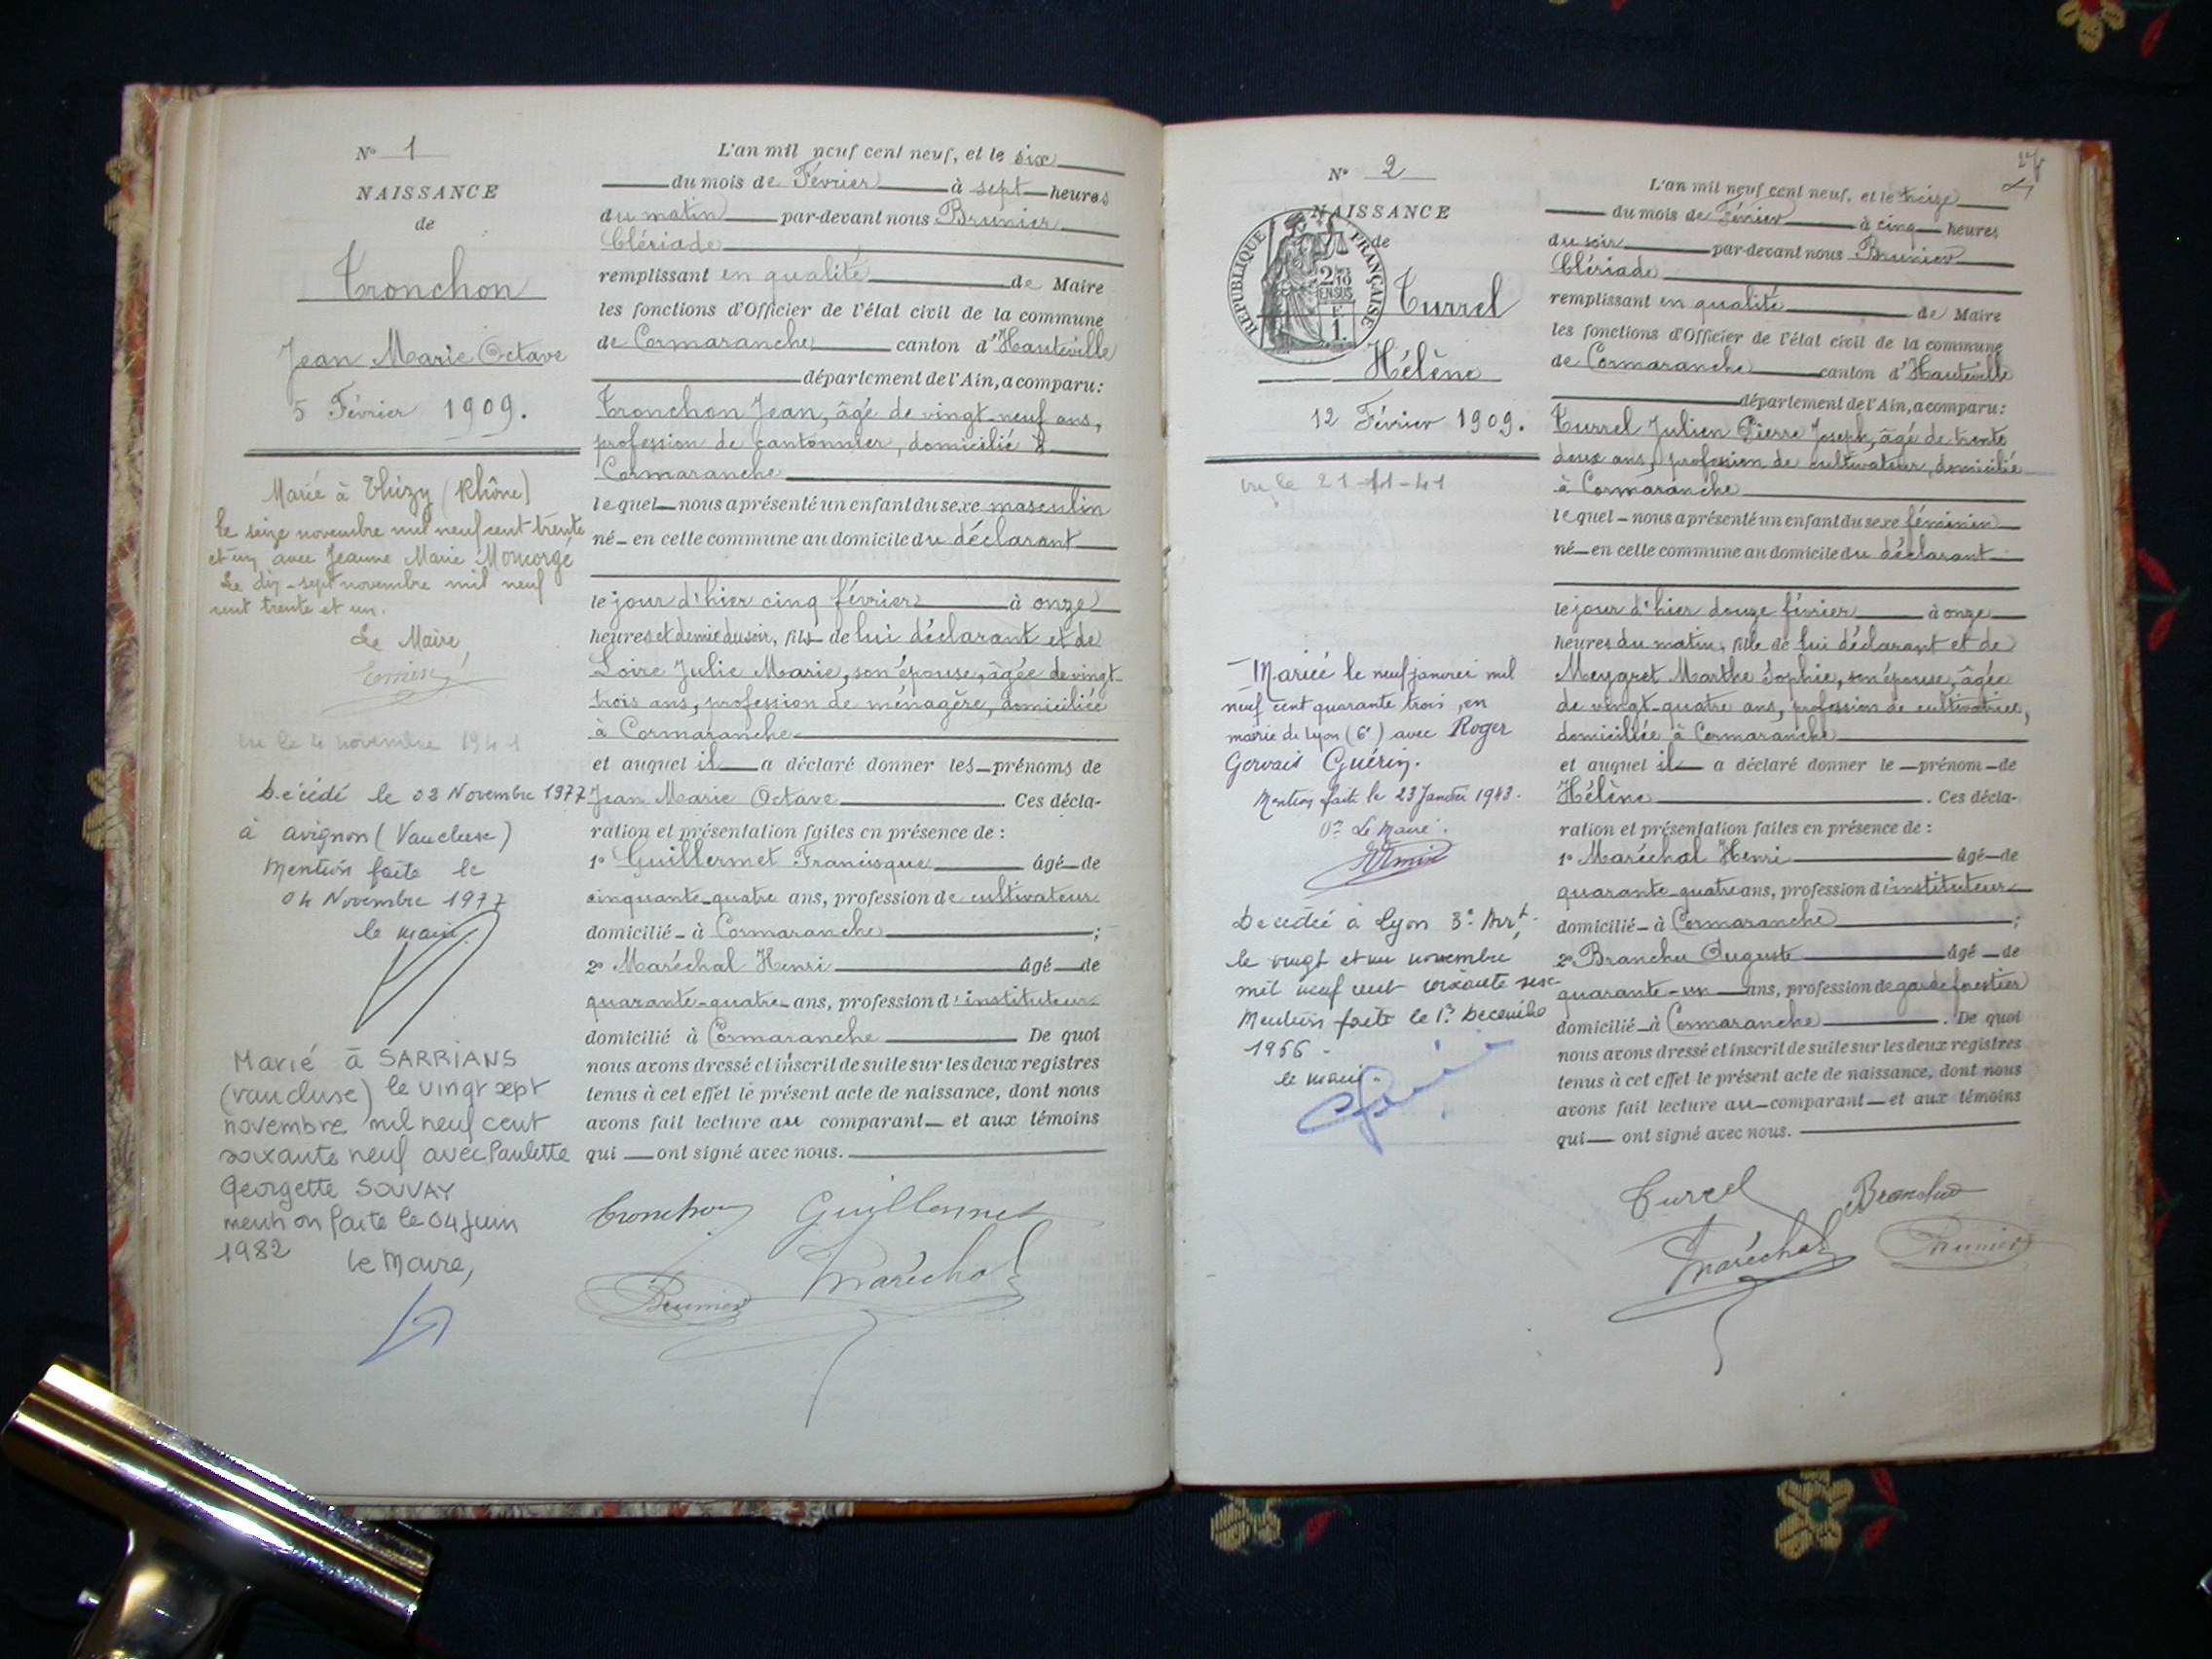 N° 1
NAISSANCE
de
Tronchon
Jean Marie Octave
5 Février 1909.
Marié à Thizy (Rhône)
le seize novembre mil neuf cent trente
et un avec Jeanne Marie Moncorgé
Le dix-sept novembre mil neuf
cent trente et un.
Le Maire,
vu le 4 novembre 1941
Décédé le 02 Novembre 1977
à avignon (Vaucluse)
Mention faite le
04 Novembre 1977
le maire.
Marié à SARRIANS
(vaucluse) le vingt sept
novembre mil neuf cent
soixante neuf avec Paulette
Georgette SOUVAY
mention faite le 04 juin
1982
le Maire,
L'an mil neuf cent neuf, et le six
du mois de Février à sept heures
du matin par-devant nous Brunier
Clériade
remplissant en qualité de Maire
les fonctions d'Officier de l'état civil de la commune
de Cormaranche canton d'Hauteville
département de l'Ain, a comparu:
Tronchon Jean, âgé de vingt-neuf ans,
profession de cantonnier, domicilié à
Cormaranche
lequel nous a présenté un enfant du sexe masculin
né en cette commune au domicile du déclarant
le jour d'hier cinq février à onze
heures et demie du soir, fils de lui déclarant et de
Loire Julie Marie, son épouse, âgée de vingt-
trois ans, profession de ménagère, domiciliée
à Cormaranche
et auquel il a déclaré donner les prénoms de
Jean Marie Octave. Ces décla-
ration et présentation faites en présence de :
1° Guillermet Francisque âgé de
cinquante-quatre ans, profession de cultivateur
domicilié à Cormaranche ;
2° Maréchal Henri âgé de
quarante-quatre ans, profession d'instituteur
domicilié à Cormaranche De quoi
nous avons dressé et inscrit de suite sur les deux registres
tenus à cet effet le présent acte de naissance, dont nous
avons fait lecture au comparant et aux témoins
qui ont signé avec nous.
Tronchon Guillermet
Brunier Maréchal
N° 2
NAISSANCE
de
REPUBLIQUE FRANÇAISE
2/10
EN SUS
1
Turrel
Hélène
12 Février 1909.
vu le 21-11-41
Mariée le neuf janvier mil
neuf cent quarante trois, en
mairie de Lyon (6e) avec Roger
Gervais Guérin.
Mention faite le 23 Janvier 1943.
Le Maire.
Décédée à Lyon 3e Arrt.
le vingt et un novembre
mil neuf cent soixante six
Mention faite le 1er Decembre
1966 -
le maire.
L'an mil neuf cent neuf, et le treize
du mois de Février à cinq heures
du soir par-devant nous Brunier
Clériade
remplissant en qualité de Maire
les fonctions d'Officier de l'état civil de la commune
de Cormaranche canton d'Hauteville
département de l'Ain, a comparu:
Turrel Julien Pierre Joseph, âgé de trente
deux ans, profession de cultivateur, domicilié
à Cormaranche
lequel nous a présenté un enfant du sexe féminin
né en cette commune au domicile du déclarant
le jour d'hier douze février à onze
heures du matin, fille de lui déclarant et de
Meygret Marthe Sophie, son épouse, âgée
de vingt-quatre ans, profession de cultivatrice,
domiciliée à Cormaranche
et auquel il a déclaré donner le prénom de
Hélène. Ces décla-
ration et présentation faites en présence de :
1° Maréchal Henri âgé de
quarante-quatre ans, profession d'instituteur
domicilié à Cormaranche ;
2° Branche Auguste âgé de
quarante-un ans, profession de garde forestier
domicilié à Cormaranche. De quoi
nous avons dressé et inscrit de suite sur les deux registres
tenus à cet effet le présent acte de naissance, dont nous
avons fait lecture au comparant et aux témoins
qui ont signé avec nous.
Turrel
Maréchal Brunier